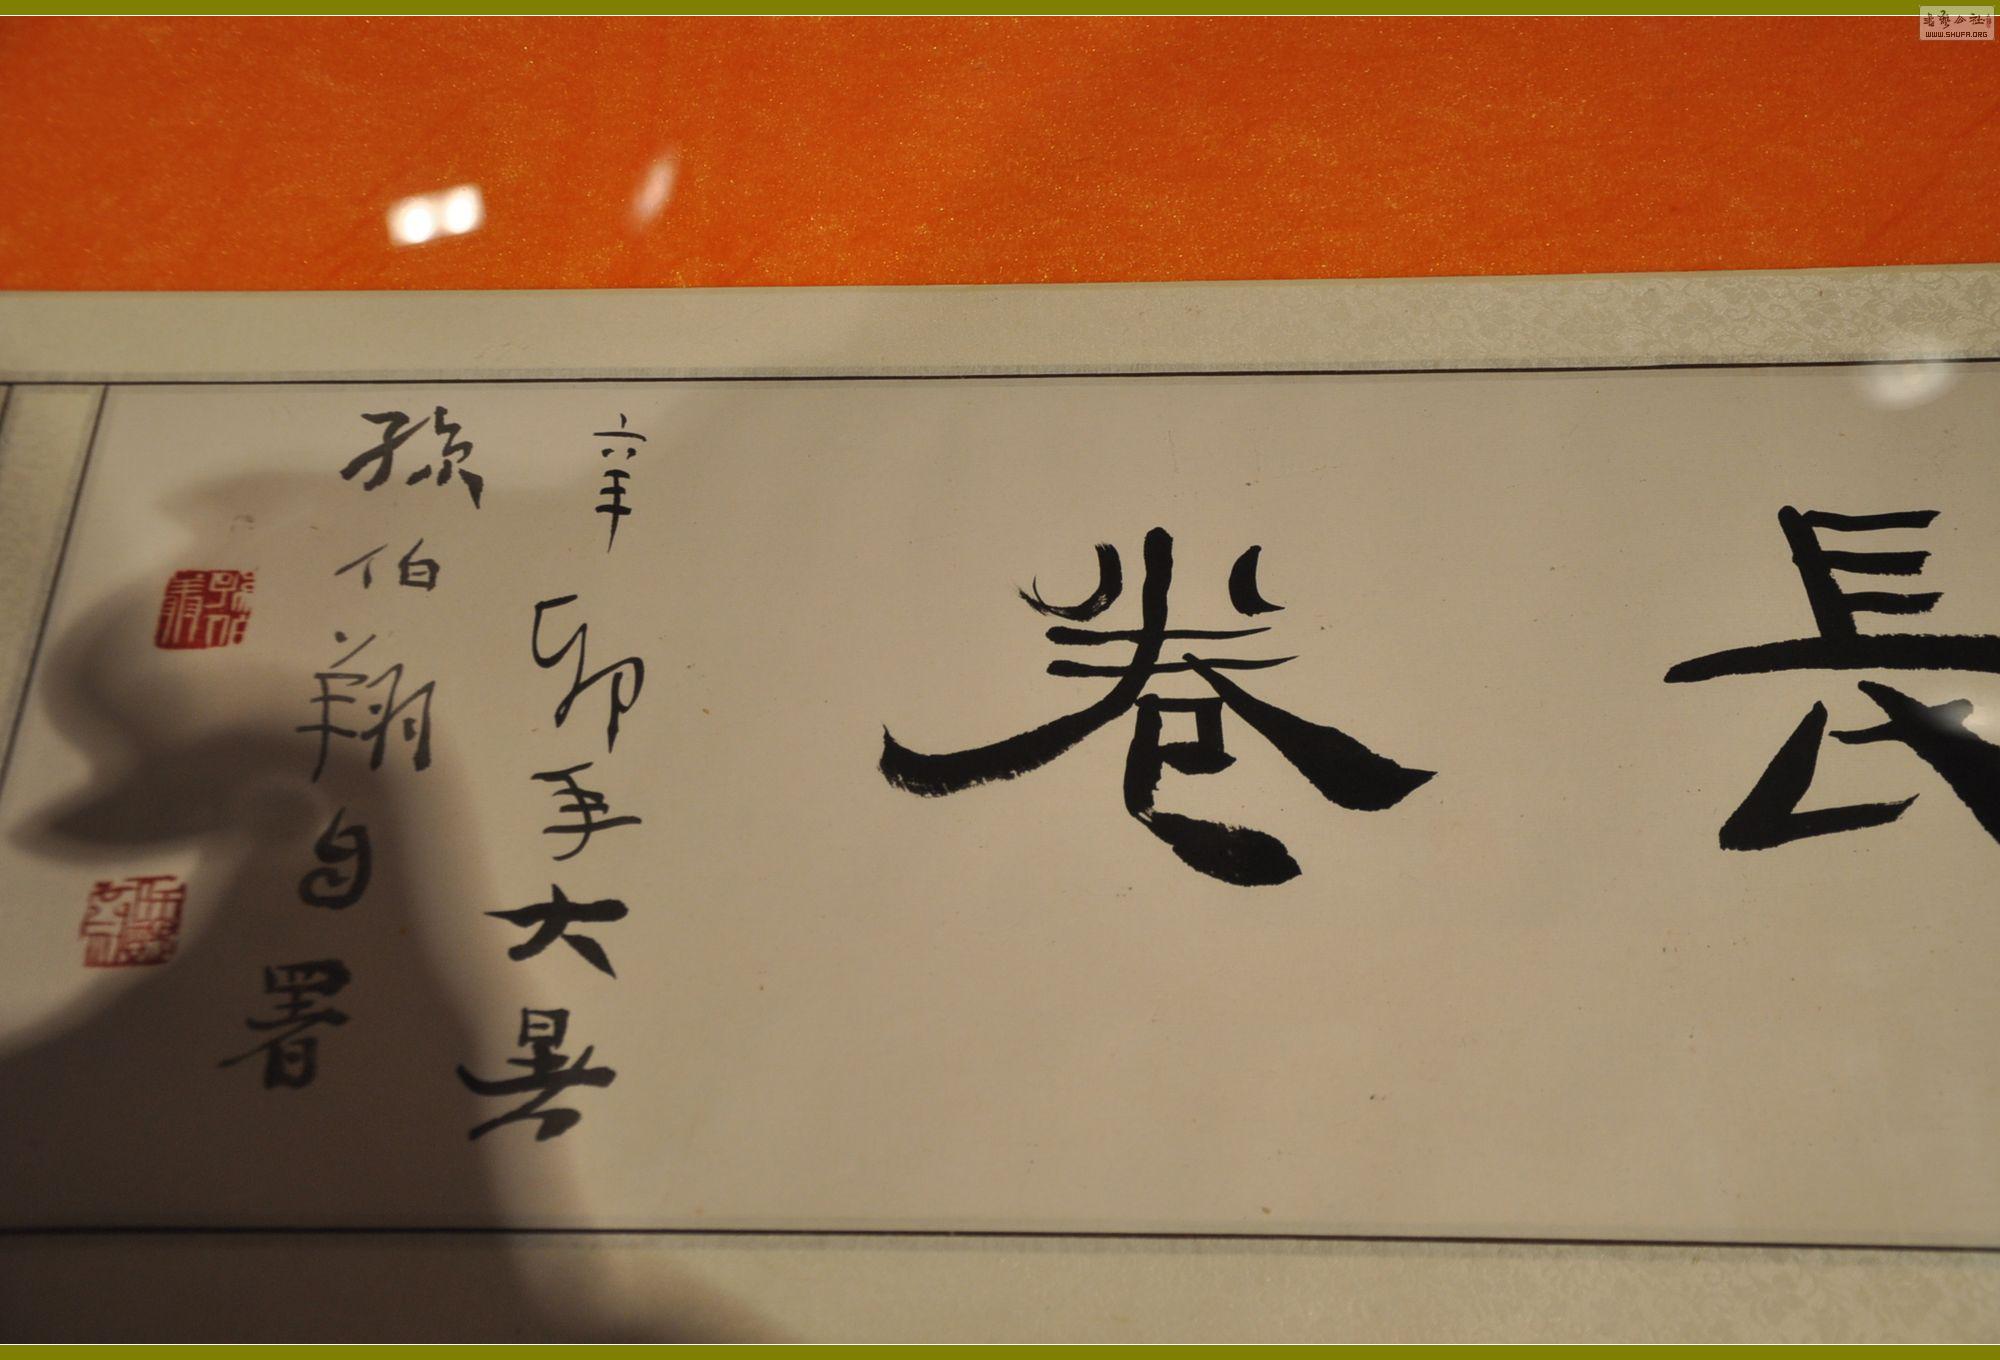 長卷
辛卯年大暑
孫伯翔自署
書藝公社
WWW.SHUFA.ORG